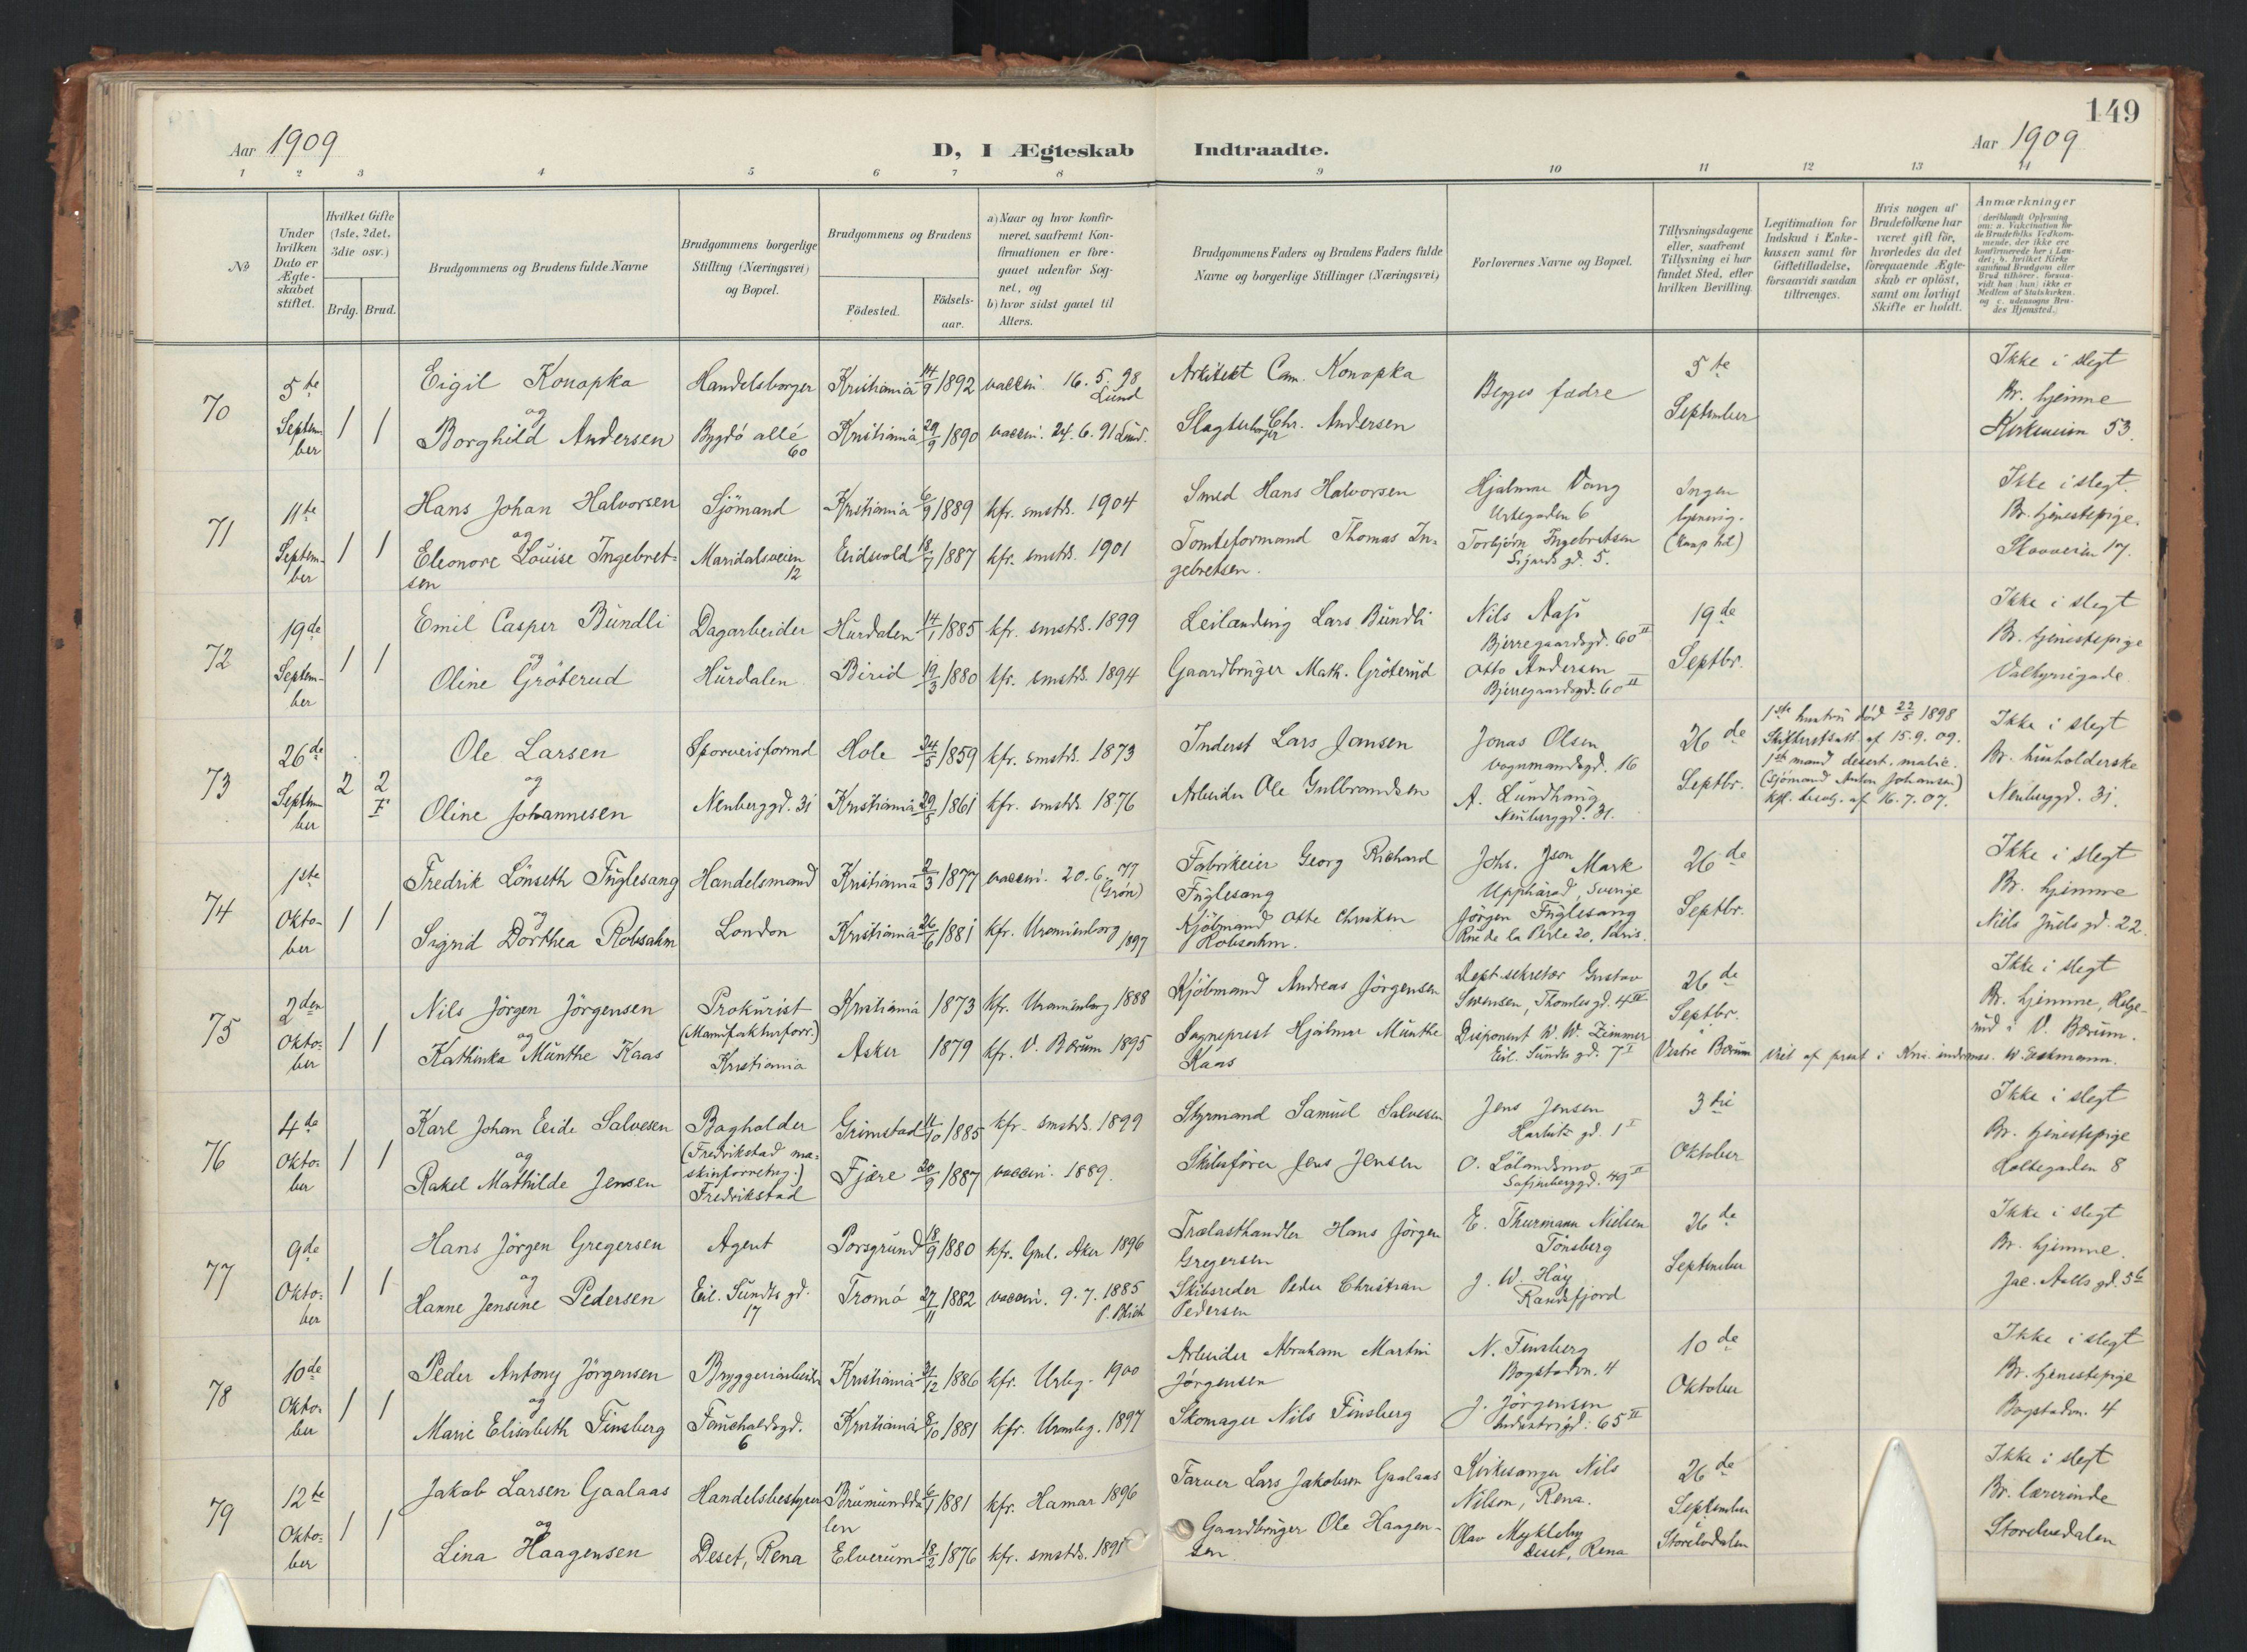 149
Aar 1909
D, I Ægteskab Indtraadte.
Aar 1909
1 2 3 4 5 6 7 8 9 10 11 12 13 14
№
Under hvilken Dato er Ægteskabet stiftet.
Hvilket Gifte (1ste, 2det, 3die osv.)
Brdg. Brud.
Brudgommens og Brudens fulde Navne
Brudgommens borgerlige Stilling (Næringsvei) og Bopæl.
Brudgommens og Brudens
Födested.
Födsels-aar.
a) Naar og hvor konfir-
meret, saafremt Kon-
firmationen er fore-
gaaet udenfor Sog-
net, og
b) hvor sidst gaaet til
Alters.
Brudgommens Faders og Brudens Faders fulde
Navne og borgerlige Stillinger (Næringsvei)
Forlovernes Navne og Bopæl.
Tillysningsdagene
eller, saafremt
Tillysning ei har
fundet Sted, efter
hvilken Bevilling.
Legitimation for
Indskud i Enke-
kassen samt for
Giftetilladelse,
forsaavidt saadan
tiltrænges.
Hvis nogen af
Brudefolkene har
været gift för,
hvorledes da det
foregaaende Ægte-
skab er oplöst,
samt om lovligt
Skifte er holdt.
Anmærkninger
(deriblandt Oplysning
om: a. Vakcination for
de Brudefolks Vedkom-
mende, der ikke ere
konfirmerede her i Lan-
det; b. hvilket Kirke-
samfund Brudgom eller
Brud tilhörer, forsaa-
vidt han (hun) ikke er
Medlem af Statskirken,
og c. udensogns Bru-
des Hjemsted.)
70
5te September
1 1
Eigil Konopka
og
Borghild Andersen
Handelsborger
Bygdö allé 60
Kristiania 14/9 1892 vaccin. 16. 5. 98 Lund
Kristiania 29/9 1890 vaccin. 24. 6. 91 Lund.
Arkitekt Cam. Konopka
Slagterborger Chr. Andersen
Begges fædre
5te September
Ikke i slegt
Br. hjemme
Kirkeveien 53.
71
11te September
1 1
Hans Johan Halvorsen
og
Eleonore Louise Ingebret-
sen
Sjömand
Maridalsveien 12
Kristiania 6/9 1889 kfr. smstds. 1904
Eidsvold 18/7 1887 kfr. smstds. 1901
Smed Hans Halvorsen
Tomteformand Thomas In-
gebretsen.
Hjalmar Vang
Urtegaden 6
Torbjörn Ingebretsen
Sigurds gd. 5.
Ingen
lysning.
Ikke i slegt.
Br. tjenestepige.
Skovveien 17.
72
19de September
1 1
Emil Casper Bundli
og
Oline Gröterud
Dagarbeider
Hurdalen
Hurdalen 14/1 1885 kfr. smstds. 1899
Birid 19/3 1880 kfr. smstds. 1894
Leilænding Lars Bundli
Gaardbruger Math. Gröterud
Nils Aasö
Bjerregaardsgd. 60 II
Otto Andersen
Bjerregaardsgd. 60 II
19de
Septbr.
Ikke i slegt
Br. tjenestepige
Valkyriegade.
73
26de September
2 2
Ole Larsen
og
Oline Johannesen
Sporveisformd
Neuberggd. 31
Hole 24/5 1859 kfr. smstds. 1873
Kristiania 29/5 1861 kfr. smstds. 1876
Inderst Lars Jansen
Arbeider Ole Gulbrandsen
Jonas Olsen
Vognmandsgd. 16
A. Lundhaug
Neuberggd. 31.
26de
Septbr.
1ste hustru död 22/5 1898
Skifteretsatt. af 15.9.09.
1ste mand desert. malic.
(Sjömand Anton Johansen)
Kgl. bevilg. af 16.7.07.
Ikke i slegt
Br. husholderske
Neuberggd. 31.
74
1ste Oktober
1 1
Fredrik Lönseth Fuglesang
og
Sigrid Dorthea Robsahm
Handelsmand
London
Kristiania 2/3 1877 vaccin. 20. 6. 77 (Grön)
Kristiania 26/6 1881 kfr. Uranienborg 1897
Fabrikeier Georg Richard
Fuglesang
Kjöbmand Otto Christian
Robsahm.
Johs. Json Mark
Upphärad, Sverige
Jörgen Fuglesang
Rue de la Perle 20, Paris.
26de
Septbr.
Ikke i slegt
Br. hjemme
Niels Juels gd. 22.
75
2den Oktober
1 1
Nils Jörgen Jörgensen
og
Kathinka Munthe Kaas
Prokurist
(Manufakturforr.)
Kristiania
Kristiania 1873 kfr. Uranienborg 1888
Asker 1879 kfr. V. Bærum 1895
Kjöbmand Andreas Jörgensen
Sogneprest Hjalmar Munthe
Kaas
Dept.sekretær Gustav
Swensen, Thomles gd. 4 III
Disponent W. W. Zimmer
Eil. Sundts gd. 7 I
26de
Septbr.
Vestre Bærum
Viet af prest i Kra. indremis. W. Eeckmann.
Ikke i slegt
Br. hjemme, Helge-
rud i V. Bærum.
76
4de Oktober
1 1
Karl Johan Eide Salvesen
og
Rakel Mathilde Jensen
Bogholder
(Fredrikstad ma-
skinforretng.)
Fredrikstad
Grimstad 11/10 1885 kfr. smstds. 1899
Fjære 20/9 1887 vaccin. 1889.
Styrmand Samuel Salvesen
Skibsförer Jens Jensen
Jens Jensen
Harbitz gd. 1 I
O. Lölandsmo
Sofienberggd. 49 II
3die
Oktober
Ikke i slegt
Br. tjenestepige
Holtegaden 8
77
9de Oktober
1 1
Hans Jörgen Gregersen
og
Hanne Jensine Pedersen
Agent
Eil. Sundts gd.
17
Porsgrund 18/9 1880 kfr. Gml. Aker 1896
Tromö 27/11 1882 vaccin. 9. 7. 1885
P. Blich
Trælasthandler Hans Jörgen
Gregersen
Skibsreder Peder Christian
Pedersen
E. Thurmann Nielsen
Tönsberg
J. W. Höy
Randsfjord
26de
September
Ikke i slegt
Br. hjemme.
Jac. Aalls gd. 56
78
10de Oktober
1 1
Peder Antony Jörgensen
og
Marie Elisabeth Finsberg
Bryggeriarbeider
Fauchaldsgd.
6
Kristiania 31/12 1886 kfr. Urbg. 1900
Kristiania 8/10 1881 kfr. Uranbg. 1897
Arbeider Abraham Martin
Jörgensen
Skomager Nils Finsberg
N. Finsberg
Bogstadvn. 4
J. Jörgensen
Industrigd. 65 II
10de
Oktober
Ikke i slegt
Br. tjenestepige
Bogstadvn. 4
79
12te Oktober
1 1
Jakob Larsen Gaalaas
og
Lina Haagensen
Handelsbestyrer
Deset, Rena
Brumundda-
len 6/1 1881 kfr. Hamar 1896
Elverum 18/2 1876 kfr. smstds. 1891
Farver Lars Jakobsen Gaalaas
Gaardbruger Ole Haagen-
sen
Kirkesanger Nils
Nilsen, Rena.
Olav Mykleby
Deset, Rena
26de
September
i
Storelvdalen
Ikke i slegt
Br. lærerinde
Storelvedalen